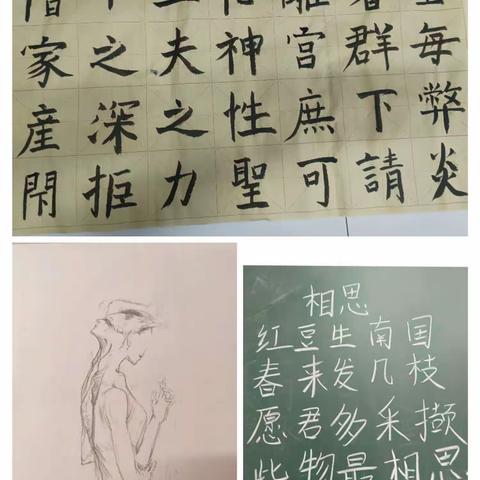 每弊炎
群下請
宮庶可
神性聖
夫之力
之深拒
家産閇
相思
红豆生南国
春来发几枝
愿君多采撷
此物最相思